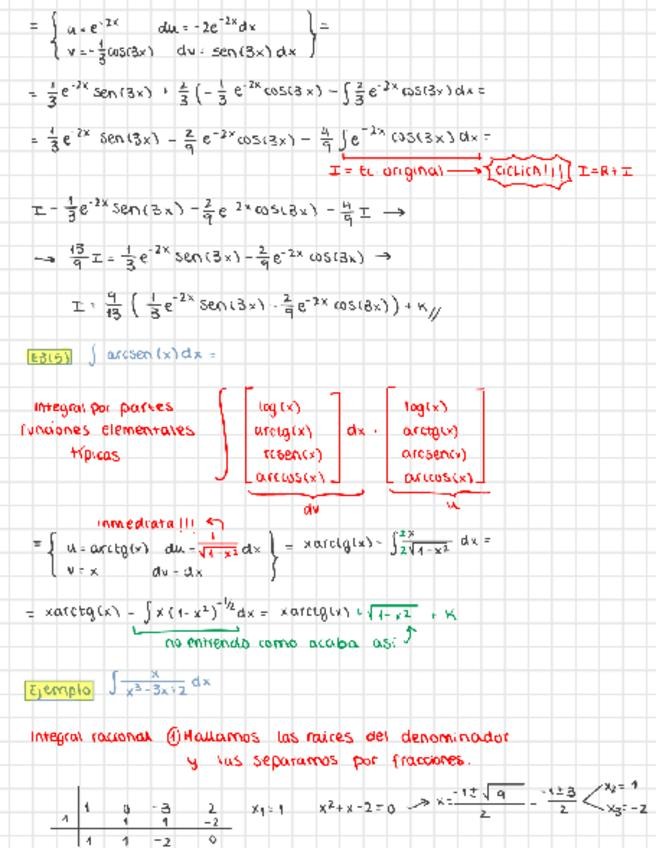 = { u = e^-2x du = -2e^-2x dx
v = -1/3 cos(3x) dv = sen(3x) dx } =
= 1/3 e^-2x sen(3x) + 2/3 (-1/3 e^-2x cos(3x) - ∫ 2/3 e^-2x cos(3x) dx =
= 1/3 e^-2x sen(3x) - 2/9 e^-2x cos(3x) - 4/9 ∫ e^-2x cos(3x) dx =
I = EL original → CICLICA!!! I = R + I
I = 1/3 e^-2x sen(3x) - 2/9 e^-2x cos(3x) - 4/9 I →
→ 13/9 I = 1/3 e^-2x sen(3x) - 2/9 e^-2x cos(3x) →
I = 9/13 ( 1/3 e^-2x sen(3x) - 2/9 e^-2x cos(3x) ) + K //
E3(5) ∫ arcsen(x) dx =
Integral por partes
funciones elementales
típicas
∫ [ log(x) arctg(x) rcsen(x) arccos(x) ] dx · [ log(x) arctg(x) arcsen(x) arccos(x) ]
dv u
inmediata!!!
= { u = arctg(x) du = 1/√(1-x²) dx
v = x dv = dx } = xarctg(x) - ∫ 2x/2√(1-x²) dx =
= xarctg(x) - ∫ x(1-x²)^-1/2 dx = xarctg(x) + √(1-x²) + K
no entiendo como acaba así
Ejemplo ∫ x/(x³-3x+2) dx
Integral racional ① Hallamos las raices del denominador
y las separamos por fracciones.
1 0 -3 2
1 1 1 -2
1 1 -2 0
x₁ = 1 x²+x-2=0 → x = (-1±√9)/2 = (-1±3)/2 < x₂ = 1
x₃ = -2